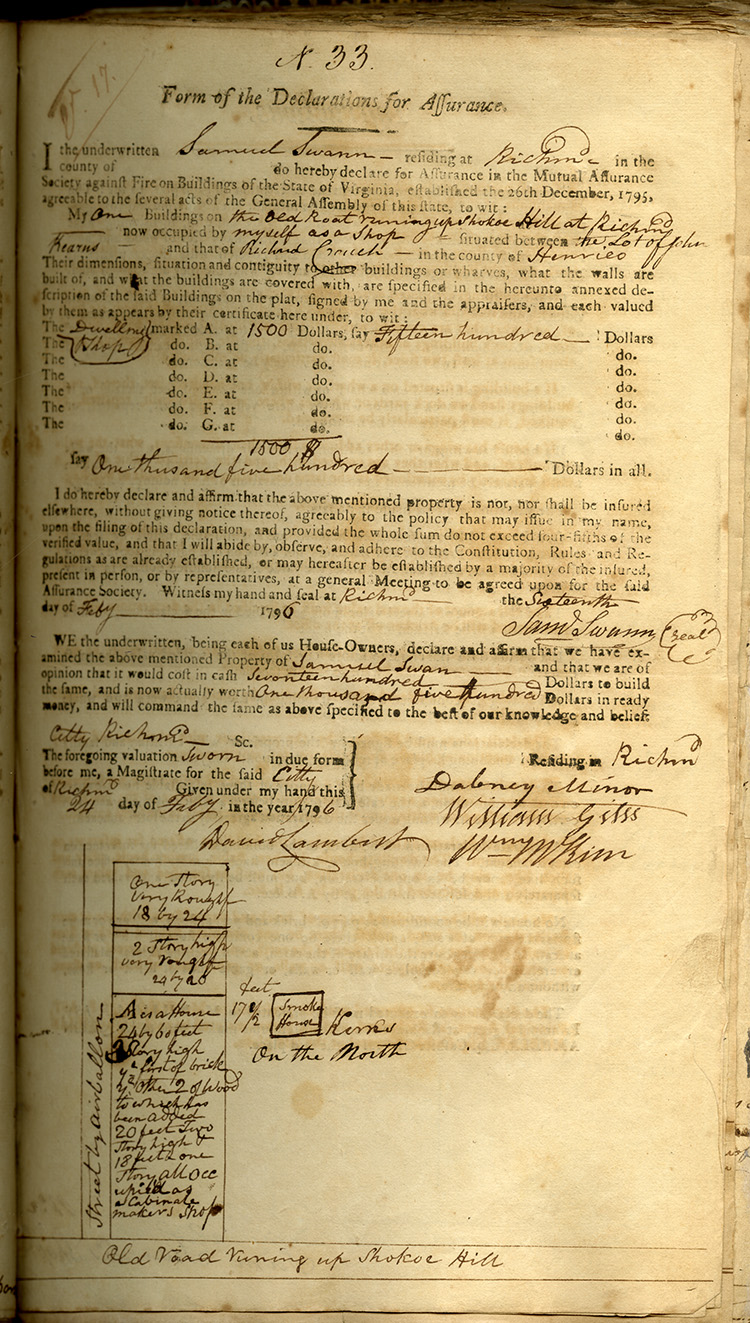 N. 33.
N. 17.
Form of the Declarations for Aſſurance.
I the underwritten Samuel Swann — reſiding at Richmd in the
county of do hereby declare for Aſſurance in the Mutual Aſſurance
Society againſt Fire on Buildings of the State of Virginia, eſtabliſhed the 26th December, 1795,
agreeable to the ſeveral acts of the General Aſſembly of this ſtate, to wit:
My One Buildings on the Old Road runing up Shokoe Hill at Richmd
now occupied by myself as a Shop — ſituated between the Lot of John
Kearns — and that of Richard Crouch — in the county of Henrico
Their dimenſions, ſituation and contiguity to other buildings or wharves, what the walls are
built of, and what the buildings are covered with, are ſpecified in the hereunto annexed de-
ſcription of the ſaid Buildings on the plat, ſigned by me and the appraiſers, and each valued
by them as appears by their certificate here under, to wit:
The Dwelling marked A. at 1500 Dollars, ſay Fifteen hundred — Dollars
The Shop do. B. at do. do.
The do. C. at do. do.
The do. D. at do. do.
The do. E. at do. do.
The do. F. at do. do.
The do. G. at do. do.
1500 $
ſay One thusand five hundred — Dollars in all.
I do hereby declare and affirm that the above mentioned property is not, nor ſhall be inſured
elſewhere, without giving notice thereof, agreeably to the policy that may iſſue in my name,
upon the filing of this declaration, and provided the whole ſum do not exceed four-fifths of the
verified value, and that I will abide by, obſerve, and adhere to the Conſtitution, Rules and Re-
gulations as are already eſtabliſhed, or may hereafter be eſtabliſhed by a majority of the inſured,
preſent in perſon, or by repreſentatives, at a general Meeting to be agreed upon for the ſaid
Aſſurance Society. Witneſs my hand and ſeal at Richmd the Sixteenth
day of Feby 1796
Saml Swann (Seal)
WE the underwritten, being each of us Houſe-Owners, declare and affirm that we have ex-
amined the above mentioned Property of Samuel Swan — and that we are of
opinion that it would coſt in caſh Seventeen hundred Dollars to build
the ſame, and is now actually worth One thousand five Hundred Dollars in ready
money, and will command the ſame as above ſpecified to the beſt of our knowledge and belief.
Citty Richmd Sc.
The foregoing valuation Sworn in due form
before me, a Magiſtrate for the ſaid Citty
of Richmd Given under my hand this
24 day of Feby in the year 1796
David Lambert
Reſiding in Richmd
Dabney Minor
William Gilss
Wm McKim
One Story
very Rought
18 by 24
2 Story high
very rought
24 by 20
A is a House
24 by 60 feet
3 Story high
ye first of brick
ye other 2 of Wood
to which has
been added
20 feet Two
Story high &
18 feet one
Story all occ
upied as
a Cabinate
makers Shop
feet
17 1/2
Smoke
House
Kerns
On the North
Street by airballon
Old Road runing up Shokoe Hill